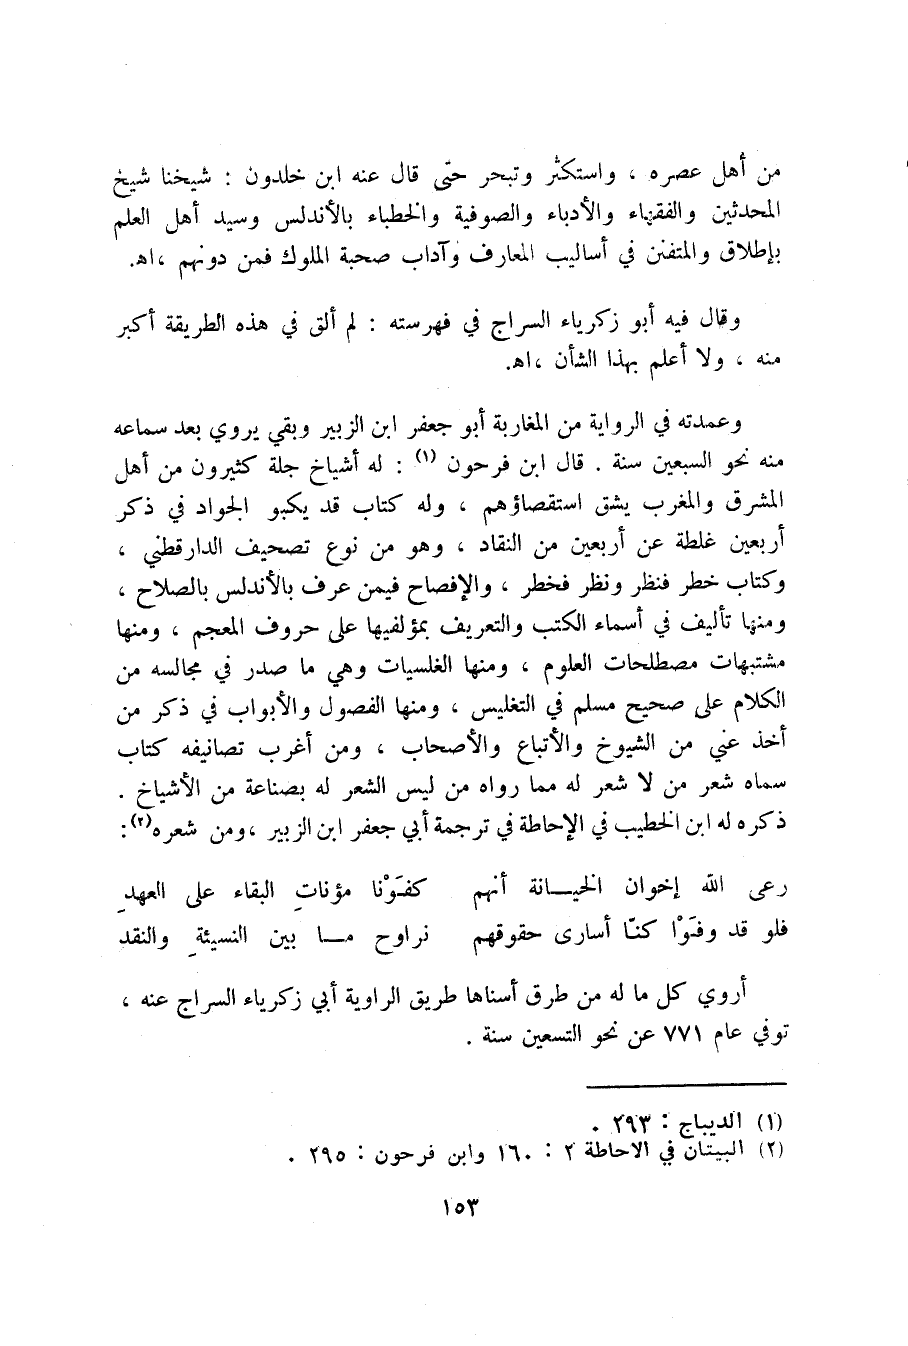 من أهل عصره ، واستكثر وتبحر حتى قال عنه ابن خلدون : شيخنا شيخ
المحدثين والفقهاء والأدباء والصوفية والخطباء بالأندلس وسيد أهل العلم
بإطلاق والمتفنن في أساليب المعارف وآداب صحبة الملوك فمن دونهم ،اه.
وقال فيه أبو زكرياء السراج في فهرسته : لم ألق في هذه الطريقة أكبر
منه ، ولا أعلم بهذا الشأن ،اه.
وعمدته في الرواية من المغاربة أبو جعفر ابن الزبير وبقي يروي بعد سماعه
منه نحو السبعين سنة . قال ابن فرحون (١) : له أشياخ جلة كثيرون من أهل
المشرق والمغرب يشق استقصاؤهم ، وله كتاب قد يكبو الجواد في ذكر
أربعين غلطة عن أربعين من النقاد ، وهو من نوع تصحيف الدارقطني ،
وكتاب خطر فنظر ونظر فخطر ، والإفصاح فيمن عرف بالأندلس بالصلاح ،
ومنها تأليف في أسماء الكتب والتعريف بمؤلفيها على حروف المعجم ، ومنها
مشتبهات مصطلحات العلوم ، ومنها الغلسيات وهي ما صدر في مجالسه من
الكلام على صحيح مسلم في التغليس ، ومنها الفصول والأبواب في ذكر من
أخذ عني من الشيوخ والأتباع والأصحاب ، ومن أغرب تصانيفه كتاب
سماه شعر من لا شعر له مما رواه من ليس الشعر له بصناعة من الأشياخ .
ذكره له ابن الخطيب في الإحاطة في ترجمة أبي جعفر ابن الزبير ،ومن شعره(٢):
رعى الله إخوان الخيـــانة أنهم كفَوْنا مؤناتِ البقاء على العهدِ
فلو قد وفَوْا كنّا أسارى حقوقهم نراوح مــا بين النسيئةِ والنقد
أروي كل ما له من طرق أسناها طريق الراوية أبي زكرياء السراج عنه ،
توفي عام ٧٧١ عن نحو التسعين سنة .
(١) الديباج : ٢٩٣ .
(٢) البيتان في الاحاطة ٢ : ١٦٠ وابن فرحون : ٢٩٥ .
١٥٣